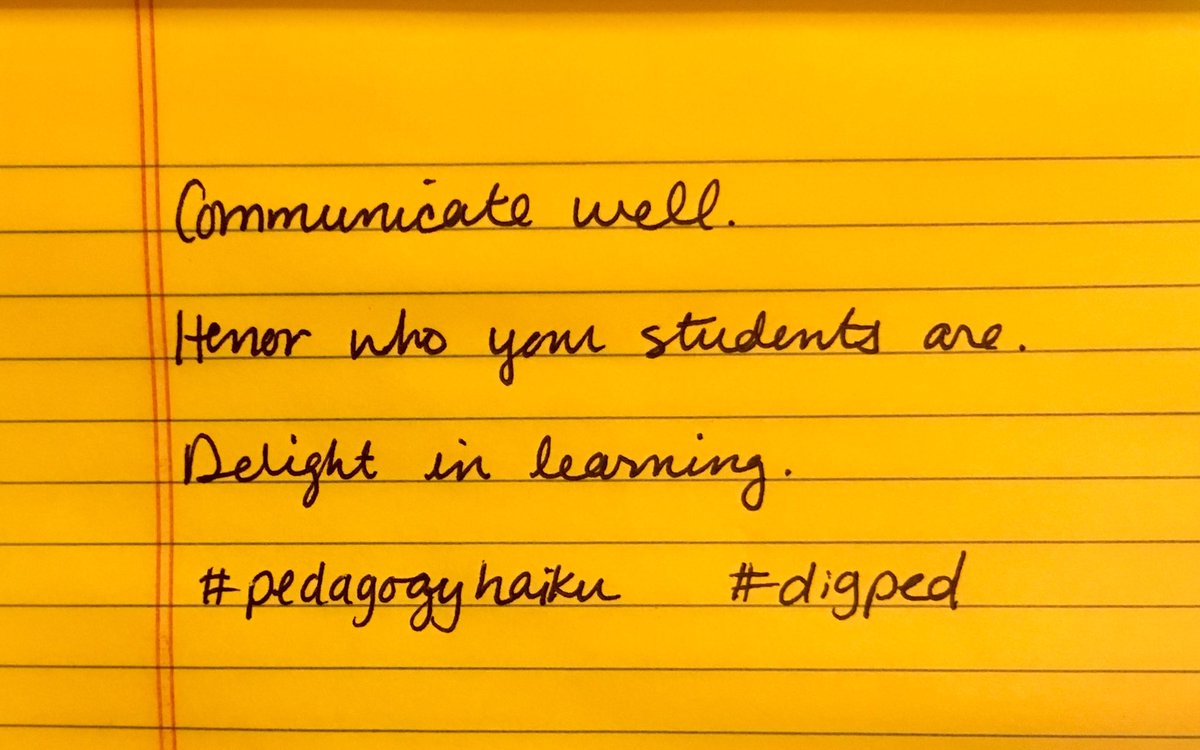 Communicate well.
Honor who your students are.
Delight in learning.
#pedagogyhaiku #digped